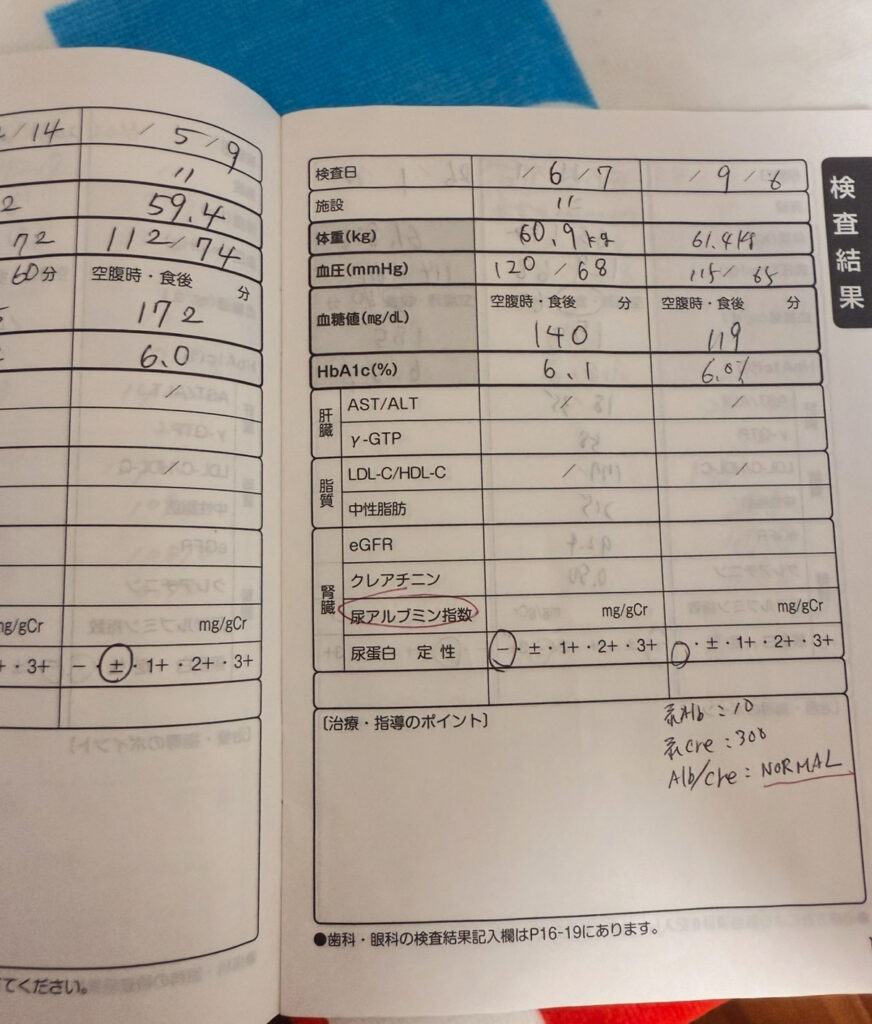 /14 / 5 / 9
〃
2 59.4
72 112/74
60分 空腹時・食後 分
172
6.0
/
/
mg/gCr mg/gCr
・3+ −・±・1+・2+・3+
てください。
検査結果
検査日 / 6 / 7 / 9 / 8
施設 〃
体重(kg) 60.9kg 61.4kg
血圧(mmHg) 120/68 115/65
血糖値(mg/dL) 空腹時・食後 分 空腹時・食後 分
140 119
HbA1c(%) 6.1 6.0%
肝臓
AST/ALT / /
γ-GTP
脂質
LDL-C/HDL-C / /
中性脂肪
腎臓
eGFR
クレアチニン
尿アルブミン指数 mg/gCr mg/gCr
尿蛋白 定性 −・±・1+・2+・3+ ・±・1+・2+・3+
〔治療・指導のポイント〕
尿Alb:10
尿cre:300
Alb/cre:NORMAL
●歯科・眼科の検査結果記入欄はP16-19にあります。